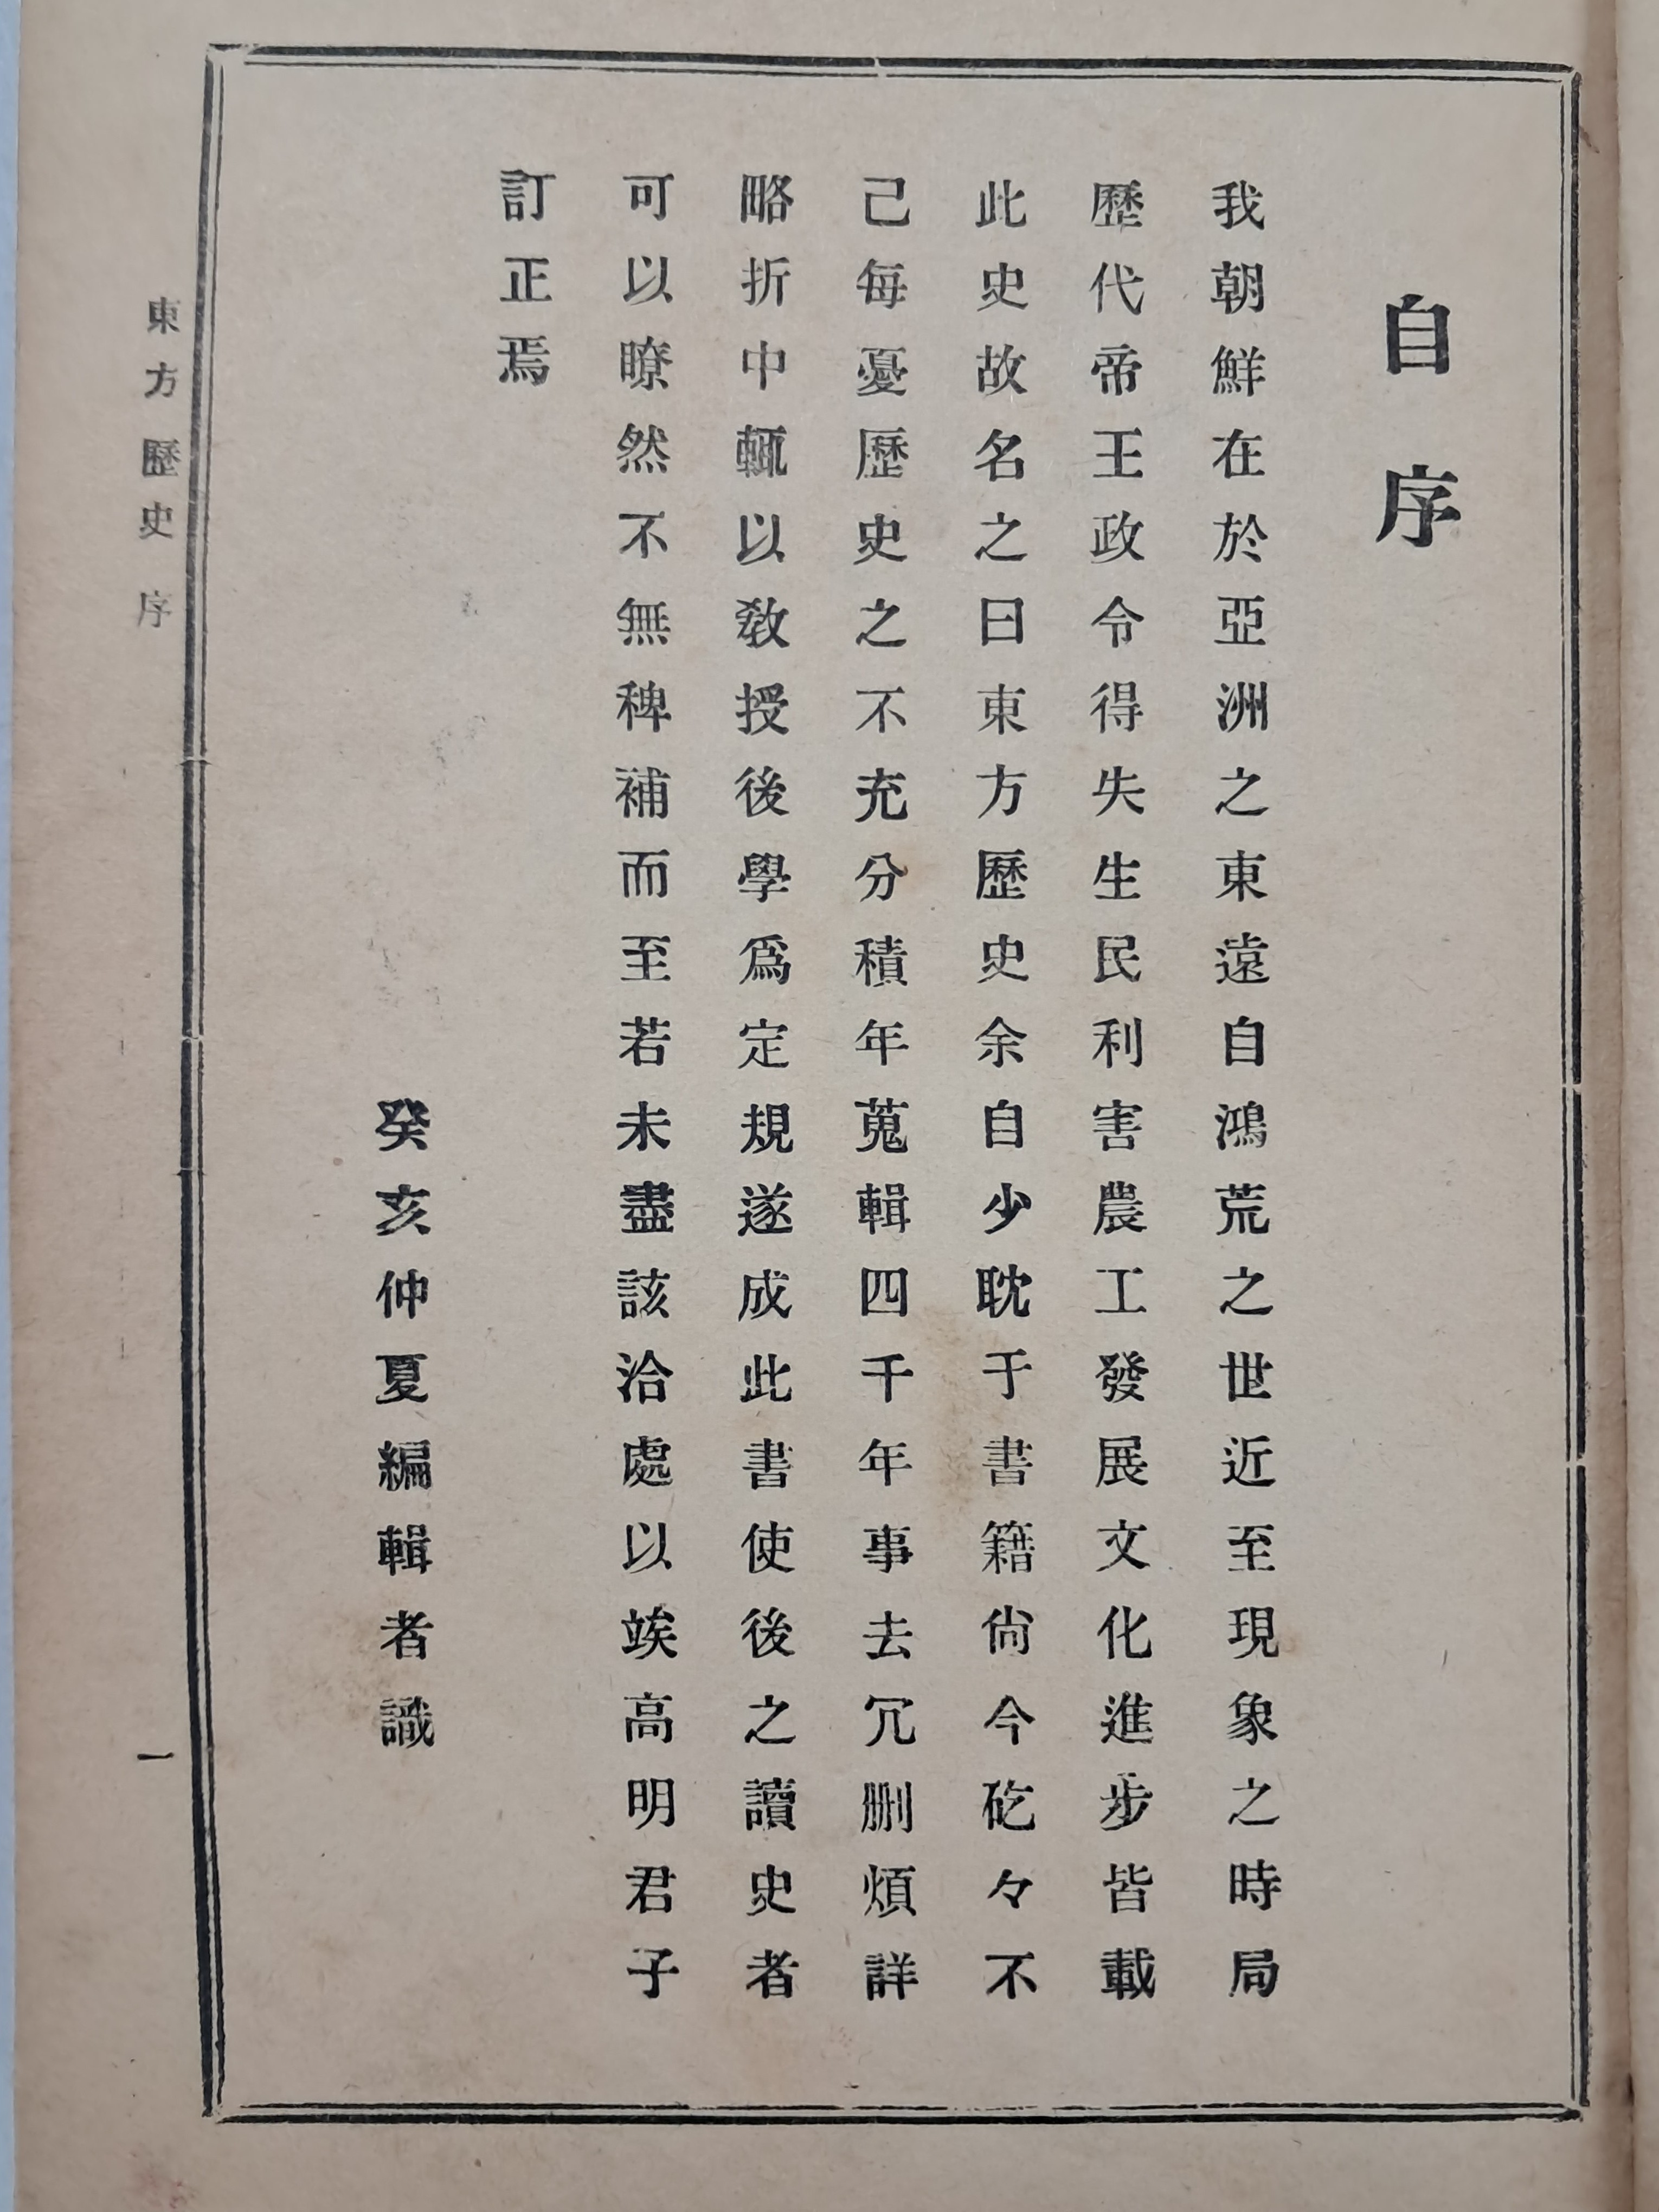 自序
我朝鮮在於亞洲之東遠自鴻荒之世近至現象之時局
歷代帝王政令得失生民利害農工發展文化進步皆載
此史故名之曰東方歷史余自少耽于書籍尙今矻々不
己每憂歷史之不充分積年蒐輯四千年事去冗刪煩詳
略折中輒以敎授後學爲定規遂成此書使後之讀史者
可以瞭然不無稗補而至若未盡該洽處以竢高明君子
訂正焉
癸亥仲夏編輯者識
東方歷史 序
一